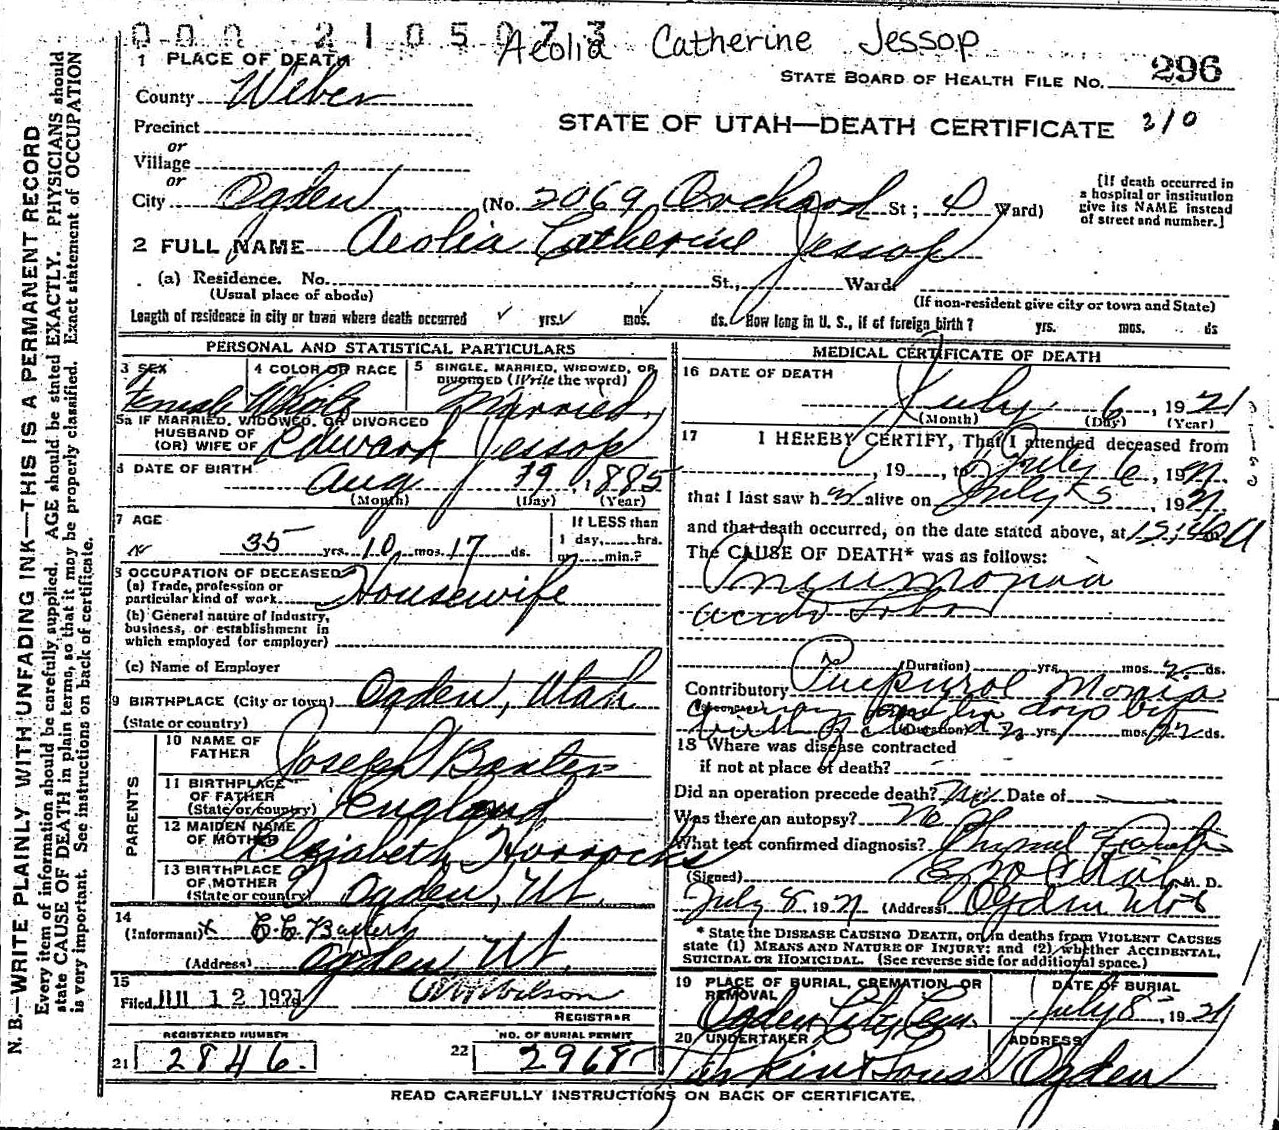 000 2105073
Aeolia Catherine Jessop
1 PLACE OF DEATH
STATE BOARD OF HEALTH FILE NO. 296
County Weber
STATE OF UTAH—DEATH CERTIFICATE 210
Precinct
or
Village
or
City Ogden (No. 2069 Orchard St; 4 Ward)
[If death occurred in
a hospital or institution
give its NAME instead
of street and number.]
2 FULL NAME Aeolia Catherine Jessop
(a) Residence. No. St., Ward.
(Usual place of abode) (If non-resident give city or town and State)
Length of residence in city or town where death occurred yrs. mos. ds. How long in U. S., if of foreign birth? yrs. mos. ds
PERSONAL AND STATISTICAL PARTICULARS
3 SEX 4 COLOR OR RACE 5 SINGLE, MARRIED, WIDOWED, OR
DIVORCED (Write the word)
Female White Married.
5a IF MARRIED, WIDOWED, OR DIVORCED
HUSBAND OF
(OR) WIFE OF Edward Jessop
6 DATE OF BIRTH
Aug 19, 1885
(Month) (Day) (Year)
7 AGE
If LESS than
35 yrs. 10 mos. 17 ds. 1 day, hrs.
or min.?
8 OCCUPATION OF DECEASED
(a) Trade, profession or
particular kind of work Housewife
(b) General nature of industry,
business, or establishment in
which employed (or employer)
(c) Name of Employer
9 BIRTHPLACE (City or town) Ogden, Utah
(State or country)
PARENTS
10 NAME OF
FATHER Joseph Baxter
11 BIRTHPLACE
OF FATHER
(State or country) England
12 MAIDEN NAME
OF MOTHER Elizabeth Horrocks
13 BIRTHPLACE
OF MOTHER
(State or country) Ogden, Ut.
14
(Informant) x E. E. Baxter
(Address) Ogden, Ut.
15
Filed JUL 12 1921 Wilson
REGISTRAR
REGISTERED NUMBER NO. OF BURIAL PERMIT
21 2846. 22 2968
MEDICAL CERTIFICATE OF DEATH
16 DATE OF DEATH
July 6, 1921
(Month) (Day) (Year)
17 I HEREBY CERTIFY, That I attended deceased from
, 19 , to July 6, 1921
that I last saw h alive on July 5, 1921
and that death occurred, on the date stated above, at 12:40 a
The CAUSE OF DEATH* was as follows:
Pneumonia
acute lobar
(Duration) yrs. mos. 2 ds.
Contributory
(Duration) yrs. mos. ds.
18 Where was disease contracted
if not at place of death?
Did an operation precede death? No Date of
Was there an autopsy? No
What test confirmed diagnosis? Physical
(Signed) M. D.
July 8, 1921 (Address) Ogden Utah
* State the DISEASE CAUSING DEATH, or, in deaths from VIOLENT CAUSES
state (1) MEANS AND NATURE OF INJURY; and (2) whether ACCIDENTAL,
SUICIDAL OR HOMICIDAL. (See reverse side for additional space.)
19 PLACE OF BURIAL, CREMATION, OR
REMOVAL DATE OF BURIAL
Ogden City Cem. July 8, 1921
20 UNDERTAKER ADDRESS
Larkin & Sons Ogden
READ CAREFULLY INSTRUCTIONS ON BACK OF CERTIFICATE.
N. B.—WRITE PLAINLY WITH UNFADING INK—THIS IS A PERMANENT RECORD
Every item of information should be carefully supplied. AGE should be stated EXACTLY. PHYSICIANS should
state CAUSE OF DEATH in plain terms, so that it may be properly classified. Exact statement of OCCUPATION
is very important. See instructions on back of certificate.